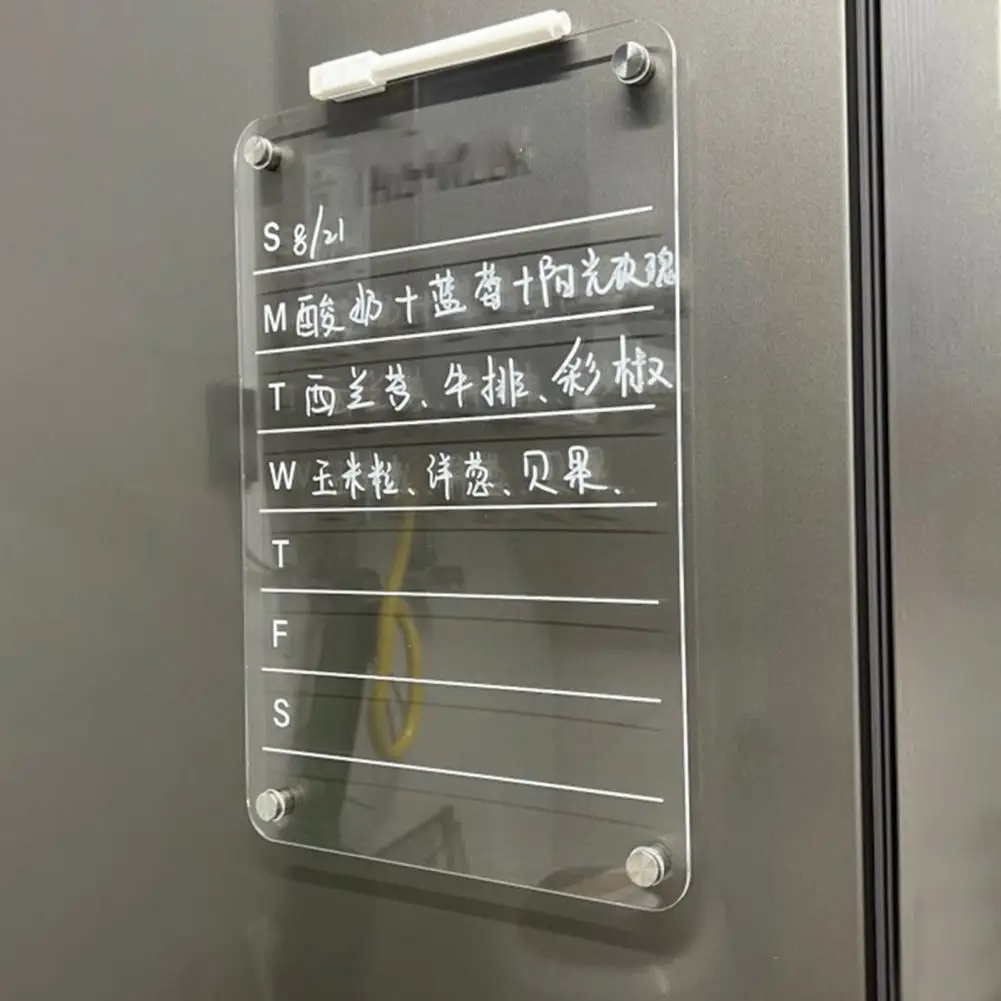 S 8/21
M 酸奶+蓝莓+阳光玫瑰
T 西兰苔、牛排、彩椒
W 玉米粒、洋葱、贝果、
T
F
S